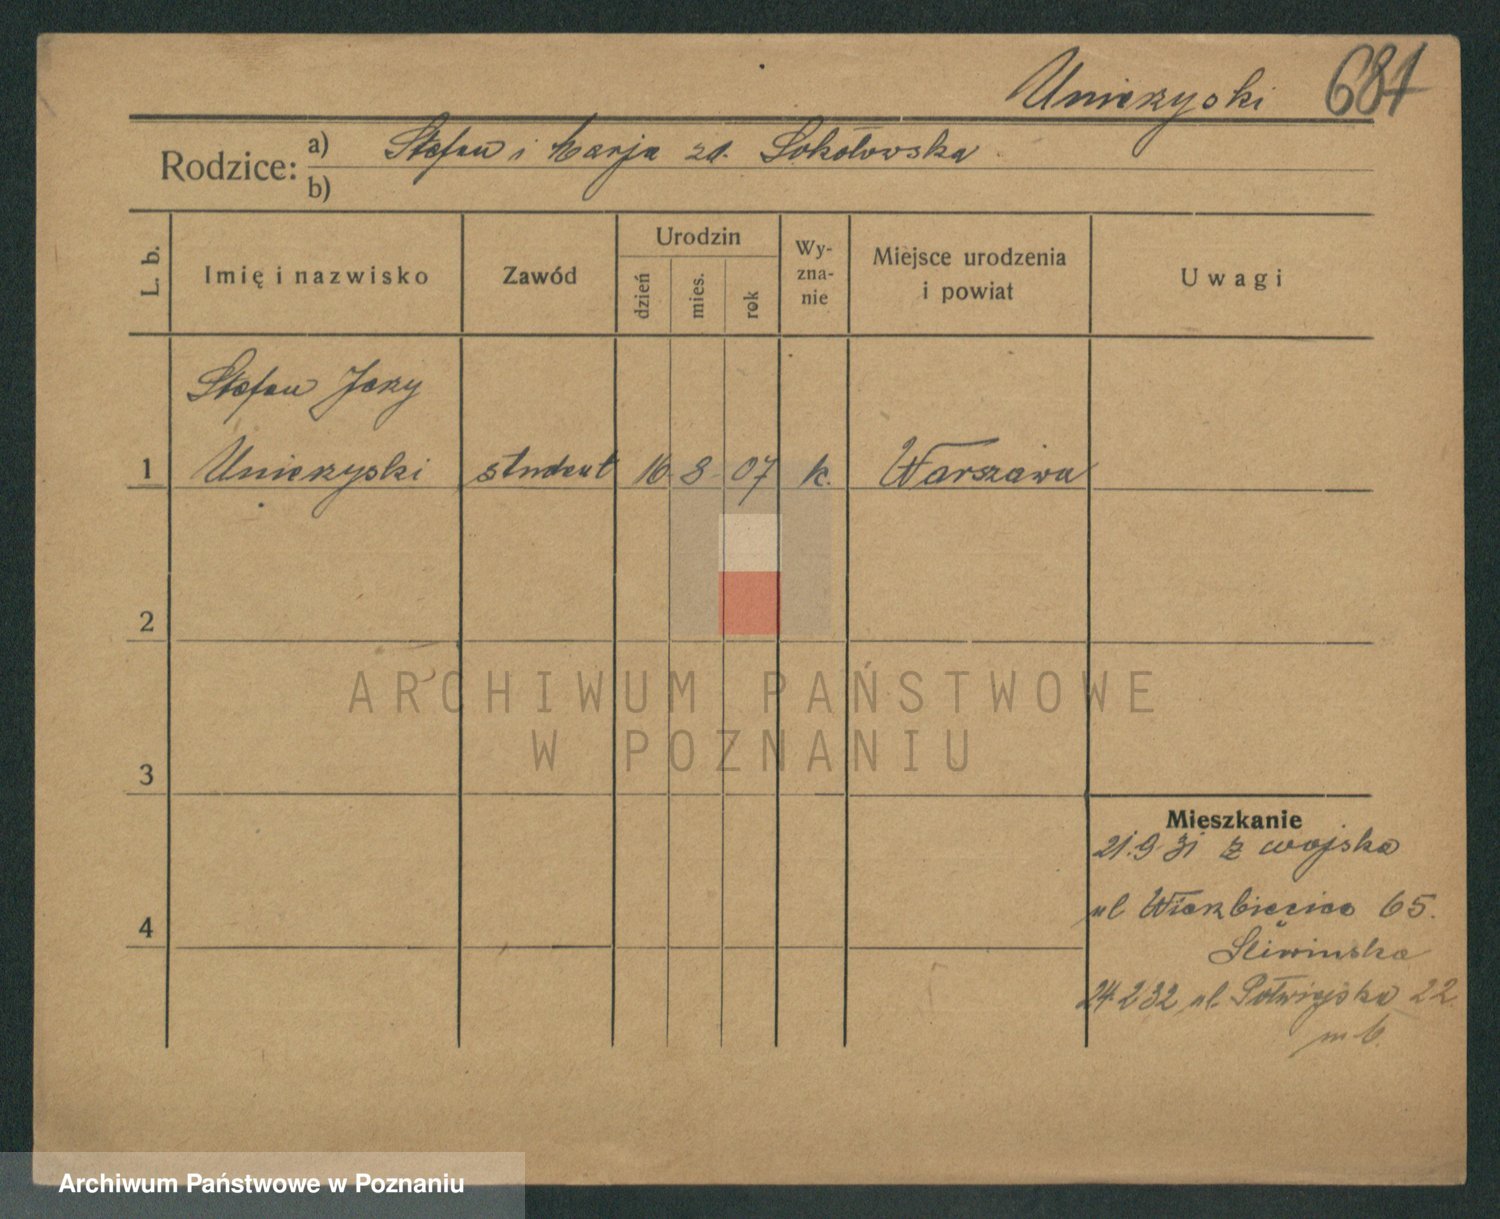 Unierzyski 681
Rodzice: a) Stefan i Marja zd. Sokołowska
b)
L. b. Imię i nazwisko Zawód Urodzin dzień mies. rok Wyznanie Miejsce urodzenia i powiat Uwagi
Stefan Jerzy
1 Unierzyski student 16 8 07 k. Warszawa
2
ARCHIWUM PAŃSTWOWE
W POZNANIU
3
Mieszkanie
21.9 31 z wojska
ul Wierzbięcice 65.
4
Śliwińska
24 2 32 ul. Półwiejska 22
m 6.
Archiwum Państwowe w Poznaniu